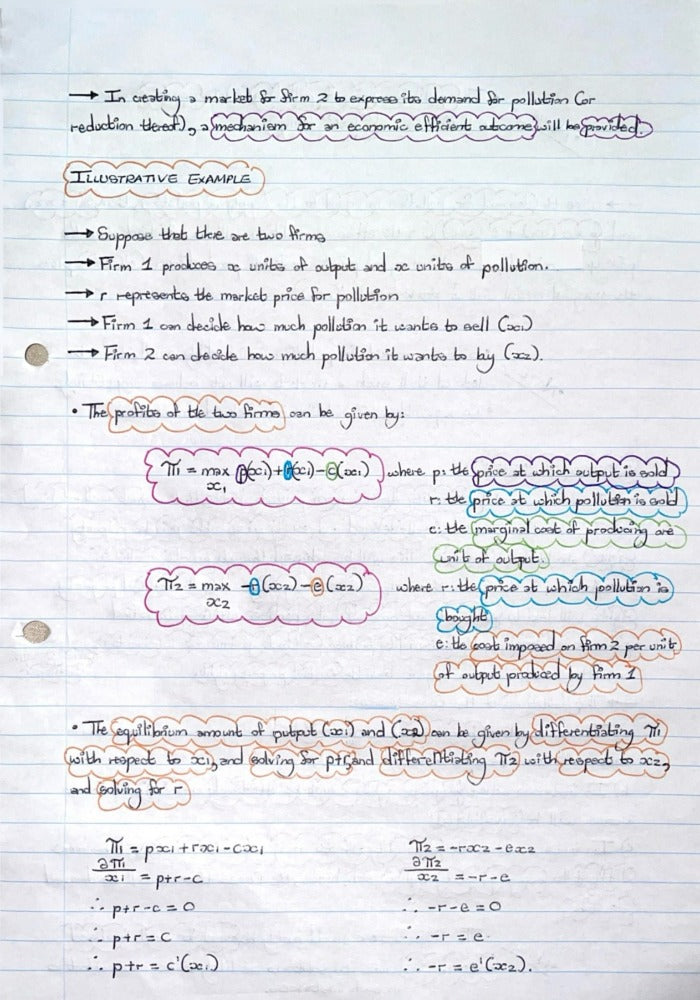 → In creating a market for firm 2 to express its demand for pollution (or
reduction thereof), a mechanism for an economic efficient outcome will be provided.
ILLUSTRATIVE EXAMPLE
→ Suppose that there are two firms
→ Firm 1 produces x units of output and x units of pollution.
→ r represents the market price for pollution
→ Firm 1 can decide how much pollution it wants to sell (x1)
→ Firm 2 can decide how much pollution it wants to buy (x2).
• The profits of the two firms can be given by:
π1 = max p(x1)+r(x1)-c(x1) where p: the price at which output is sold
x1 r: the price at which pollution is sold
c: the marginal cost of producing one
unit of output.
π2 = max -r(x2)-e(x2) where r: the price at which pollution is
x2 bought
e: the cost imposed on firm 2 per unit
of output produced by firm 1
• The equilibrium amount of output (x1) and (x2) can be given by differentiating π1
with respect to x1, and solving for p+r, and differentiating π2 with respect to x2,
and solving for r
π1 = px1+rx1-cx1 π2 = -rx2-ex2
∂π1/x1 = p+r-c ∂π2/x2 = -r-e
∴ p+r-c = 0 ∴ -r-e = 0
∴ p+r = c ∴ -r = e
∴ p+r = c'(x1) ∴ -r = e'(x2).